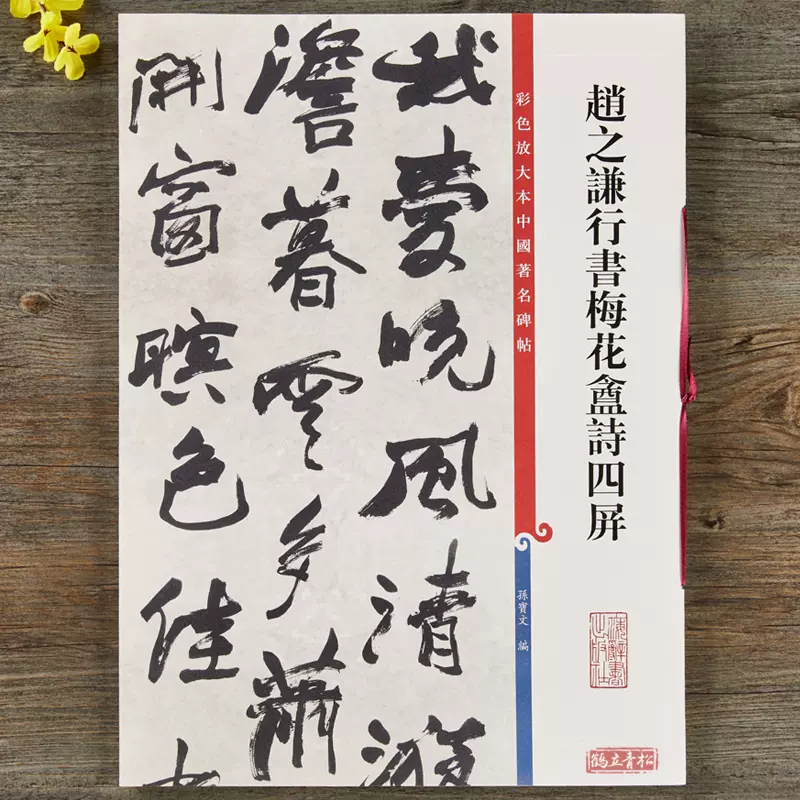 趙之謙行書梅花盦詩四屏
彩色放大本中國著名碑帖
孫寶文 編
我愛晚風清
澹暮雲多蕭
開窗暝色佳
鶴立青松